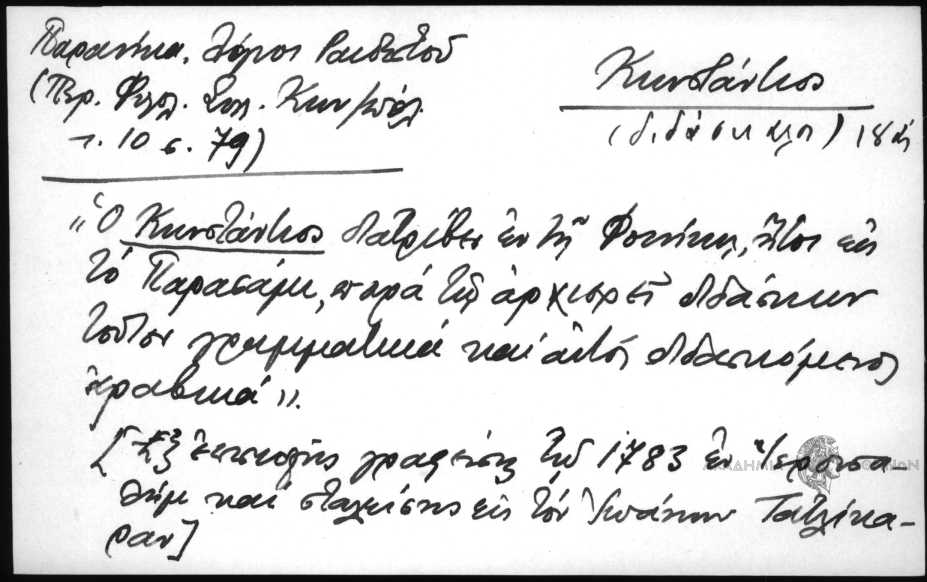 Παρανίκα, Λόγιοι Ραιδεστοῦ
(Περ. Φιλολ. Συλ. Κων/πόλ.
τ. 10 σ. 79)
Κωνστάντιος
(διδάσκαλος) 18 αἰ
"Ὁ Κωνστάντιος διατρίβει ἐν τῇ Φοινίκῃ, ἤτοι εἰς
τό Παρασάμι, παρά τῷ ἀρχιερεῖ διδάσκων
τοῦτον γραμματικά καί αὐτός διδασκόμενος
ἀραβικά".
[Ἐξ ἐπιστολῆς γραφείσης τῷ 1783 ἐν Ἱερουσα-
λήμ καί σταλείσης εἰς τόν Ἰωάννην Τατλίκα-
ραν]
ΑΚΑΔΗΜΙΑ ΑΘΗΝΩΝ